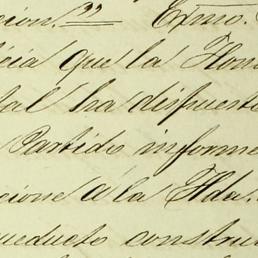 cion." Exmo.
icia que la Hon
tal ha dispuesto
Partido informe
cione á la Hda.
ueducto constru